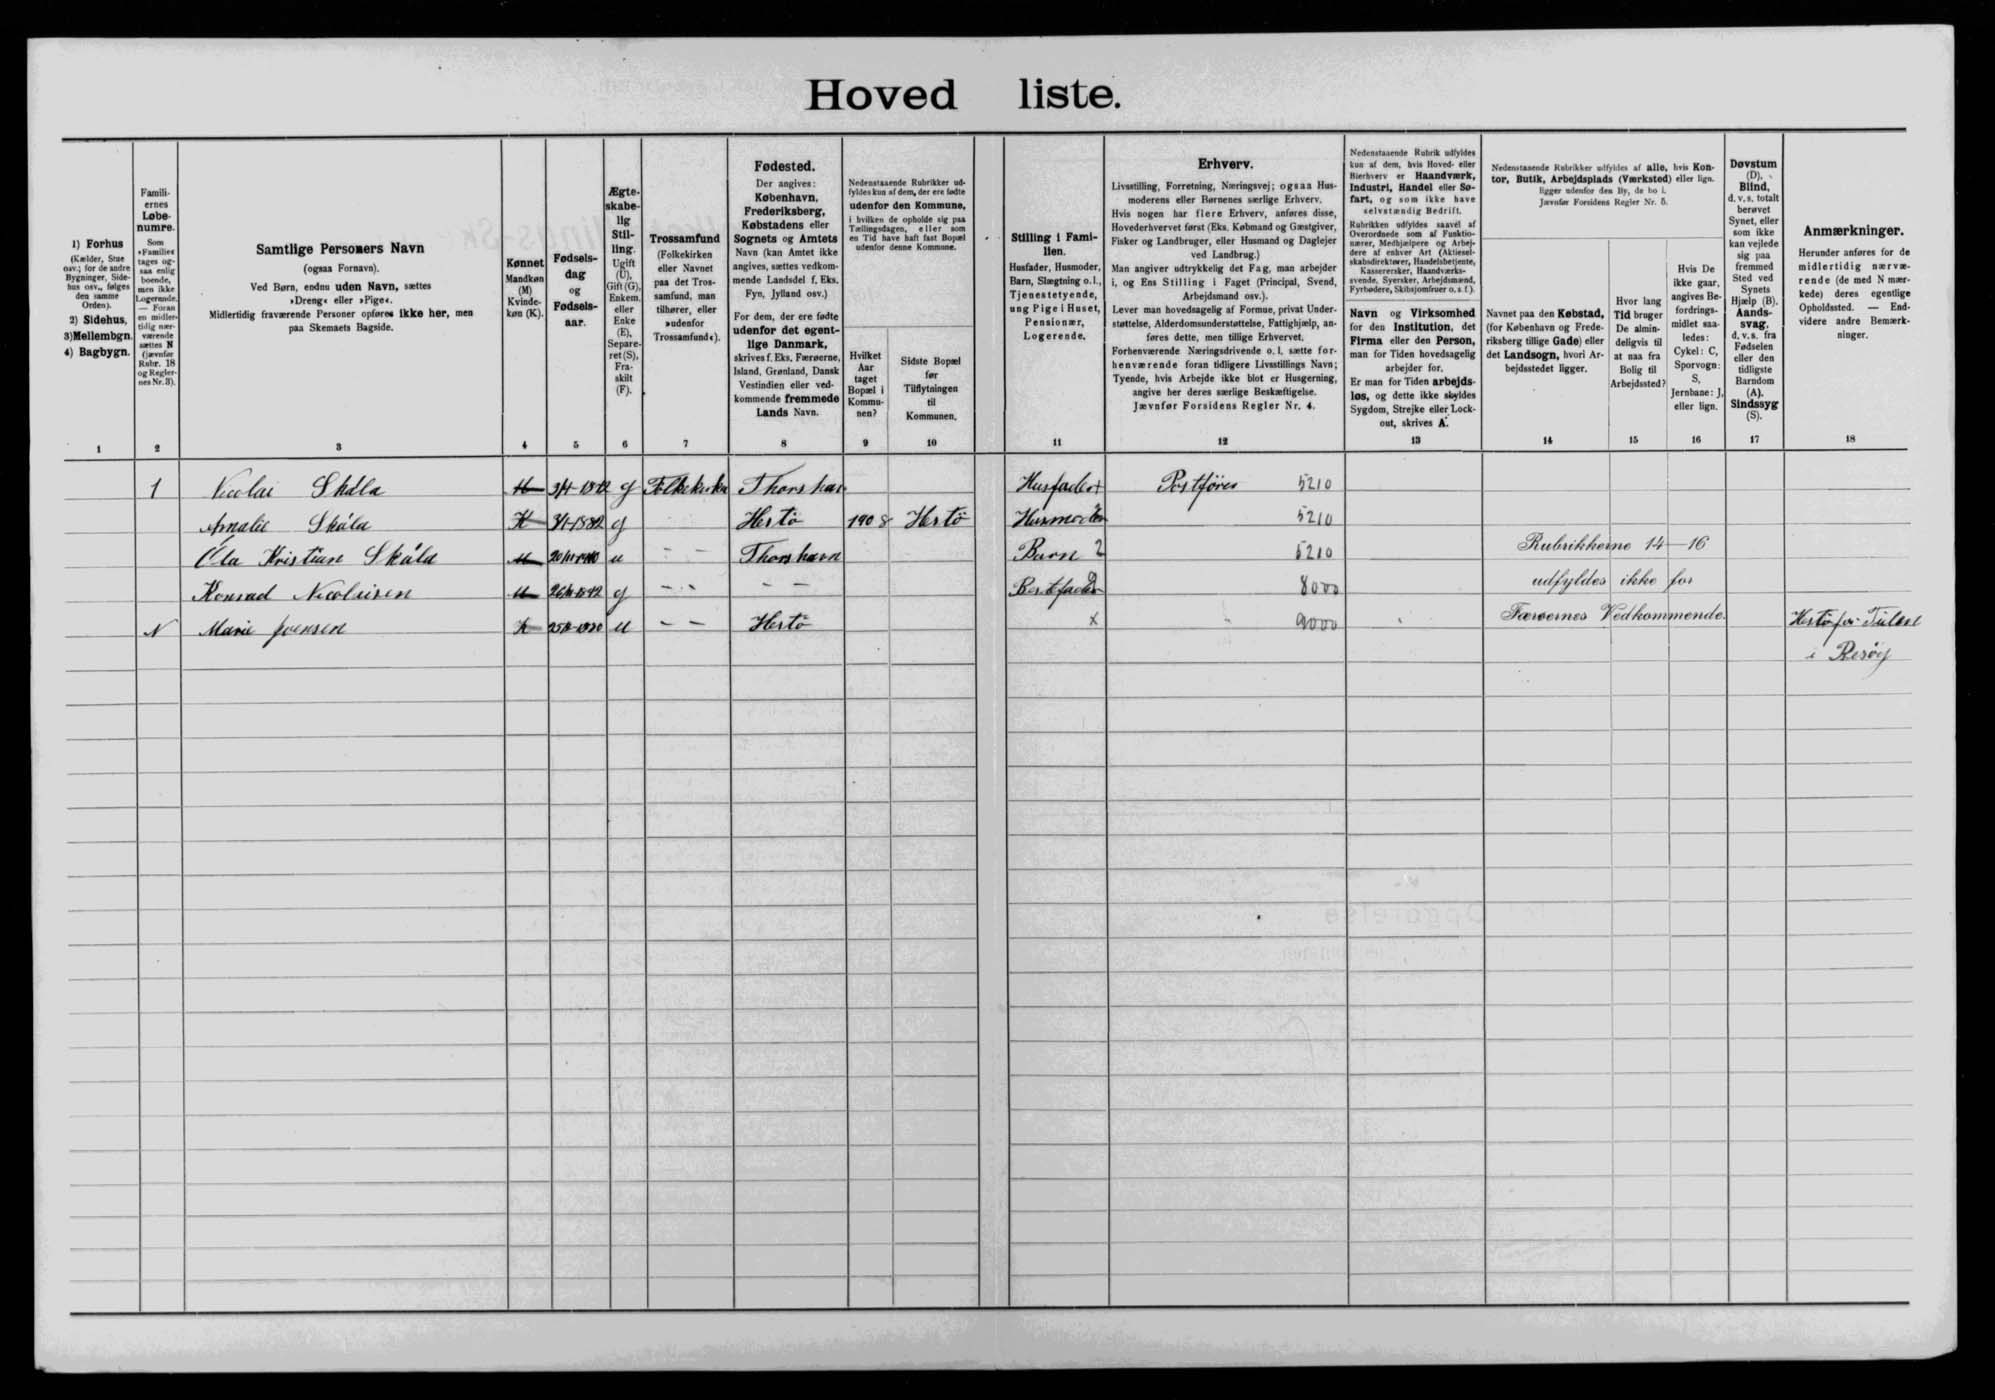 Hoved liste.
1) Forhus
(Kælder, Stue
osv.; for de andre
Bygninger, Side-
hus osv., følges
den samme
Orden).
2) Sidehus,
3) Mellembgn.
4) Bagbygn.
Famili-
ernes
Løbe-
numre.
Som
»Familie«
tages og-
saa enlig
boende,
men ikke
Logerende.
— Foran
en midler-
tidig nær-
værende
sættes N
(jævnfør
Rubr. 18
og Regler-
nes Nr. 3).
Samtlige Personers Navn
(ogsaa Fornavn).
Ved Børn, endnu uden Navn, sættes
»Dreng« eller »Pige«.
Midlertidig fraværende Personer opføres ikke her, men
paa Skemaets Bagside.
Kønnet
Mandkøn
(M)
Kvinde-
køn (K).
Fødsels-
dag
og
Fødsels-
aar.
Ægte-
skabe-
lig
Stil-
ling.
Ugift
(U),
Gift (G),
Enkem.
eller
Enke
(E),
Separe-
ret (S),
Fra-
skilt
(F).
Trossamfund
(Folkekirken
eller Navnet
paa det Tros-
samfund, man
tilhører, eller
»udenfor
Trossamfund«).
Fødested.
Der angives:
København,
Frederiksberg,
Købstadens eller
Sognets og Amtets
Navn (kan Amtet ikke
angives, sættes vedkom-
mende Landsdel f. Eks.
Fyn, Jylland osv.)
For dem, der ere fødte
udenfor det egent-
lige Danmark,
skrives f. Eks. Færøerne,
Island, Grønland, Dansk
Vestindien eller ved-
kommende fremmede
Lands Navn.
Nedenstaaende Rubrikker ud-
fyldes kun af dem, der ere fødte
udenfor den Kommune,
i hvilken de opholde sig paa
Tællingsdagen, eller som
en Tid have haft fast Bopæl
udenfor denne Kommune.
Hvilket
Aar
taget
Bopæl i
Kommu-
nen?
Sidste Bopæl
før
Tilflytningen
til
Kommunen.
Stilling i Fami-
lien.
Husfader, Husmoder,
Barn, Slægtning o. l.,
Tjenestetyende,
ung Pige i Huset,
Pensionær,
Logerende.
Erhverv.
Livsstilling, Forretning, Næringsvej; ogsaa Hus-
moderens eller Børnenes særlige Erhverv.
Hvis nogen har flere Erhverv, anføres disse,
Hovederhvervet først (Eks. Købmand og Gæstgiver,
Fisker og Landbruger, eller Husmand og Daglejer
ved Landbrug.)
Man angiver udtrykkelig det Fag, man arbejder
i, og Ens Stilling i Faget (Principal, Svend,
Arbejdsmand osv.).
Lever man hovedsagelig af Formue, privat Under-
støttelse, Alderdomsunderstøttelse, Fattighjælp, an-
føres dette, men tillige Erhvervet.
Forhenværende Næringsdrivende o. l. sætte for-
henværende foran tidligere Livsstillings Navn;
Tyende, hvis Arbejde ikke blot er Husgerning,
angive her deres særlige Beskæftigelse.
Jævnfør Forsidens Regler Nr. 4.
Nedenstaaende Rubrik udfyldes
kun af dem, hvis Hoved- eller
Bierhverv er Haandværk,
Industri, Handel eller Sø-
fart, og som ikke have
selvstændig Bedrift.
Rubrikken udfyldes saavel af
Overordnede som af Funktio-
nærer, Medhjælpere og Arbej-
dere af enhver Art (Aktiesel-
skabsdirektører, Handelsbetjente,
Kassererske, Haandværks-
svende, Syersker, Arbejdsmænd,
Fyrbødere, Skibsjomfruer o. s. f.).
Navn og Virksomhed
for den Institution, det
Firma eller den Person,
man for Tiden hovedsagelig
arbejder for.
Er man for Tiden arbejds-
løs, og dette ikke skyldes
Sygdom, Strejke eller Lock-
out, skrives A.
Nedenstaaende Rubrikker udfyldes af alle, hvis Kon-
tor, Butik, Arbejdsplads (Værksted) eller lign.
ligger udenfor den By, de bo i.
Jævnfør Forsidens Regler Nr. 5.
Navnet paa den Købstad,
(for København og Frede-
riksberg tillige Gade) eller
det Landsogn, hvori Ar-
bejdsstedet ligger.
Hvor lang
Tid bruger
De almin-
deligvis til
at naa fra
Bolig til
Arbejdssted?
Hvis De
ikke gaar,
angives Be-
fordrings-
midlet saa-
ledes:
Cykel: C,
Sporvogn:
S,
Jernbane: J,
eller lign.
Døvstum
(D).
Blind,
d. v. s. totalt
berøvet
Synet, eller
som ikke
kan vejlede
sig paa
fremmed
Sted ved
Synets
Hjælp (B).
Aands-
svag,
d. v. s. fra
Fødselen
eller den
tidligste
Barndom
(A).
Sindssyg
(S).
Anmærkninger.
Herunder anføres for de
midlertidig nærvæ-
rende (de med N mær-
kede) deres egentlige
Opholdssted. — End-
videre andre Bemærk-
ninger.
1 2 3 4 5 6 7 8 9 10 11 12 13 14 15 16 17 18
1 Nicolai Skåla M g Folkekirken Thorshavn Husfader Postfører 5210
Amalie Skåla K g Hestø 1908 Hestø Husmoder 5210
Óla Kristian Skåla M u – – Thorshavn Barn 2 5210 Rubrikkerne 14—16
Konrad Nicolaisen M g – – – – 8000 udfyldes ikke for
N Marie Joensen K u – – Hestø x 9000 Færøernes Vedkommende.